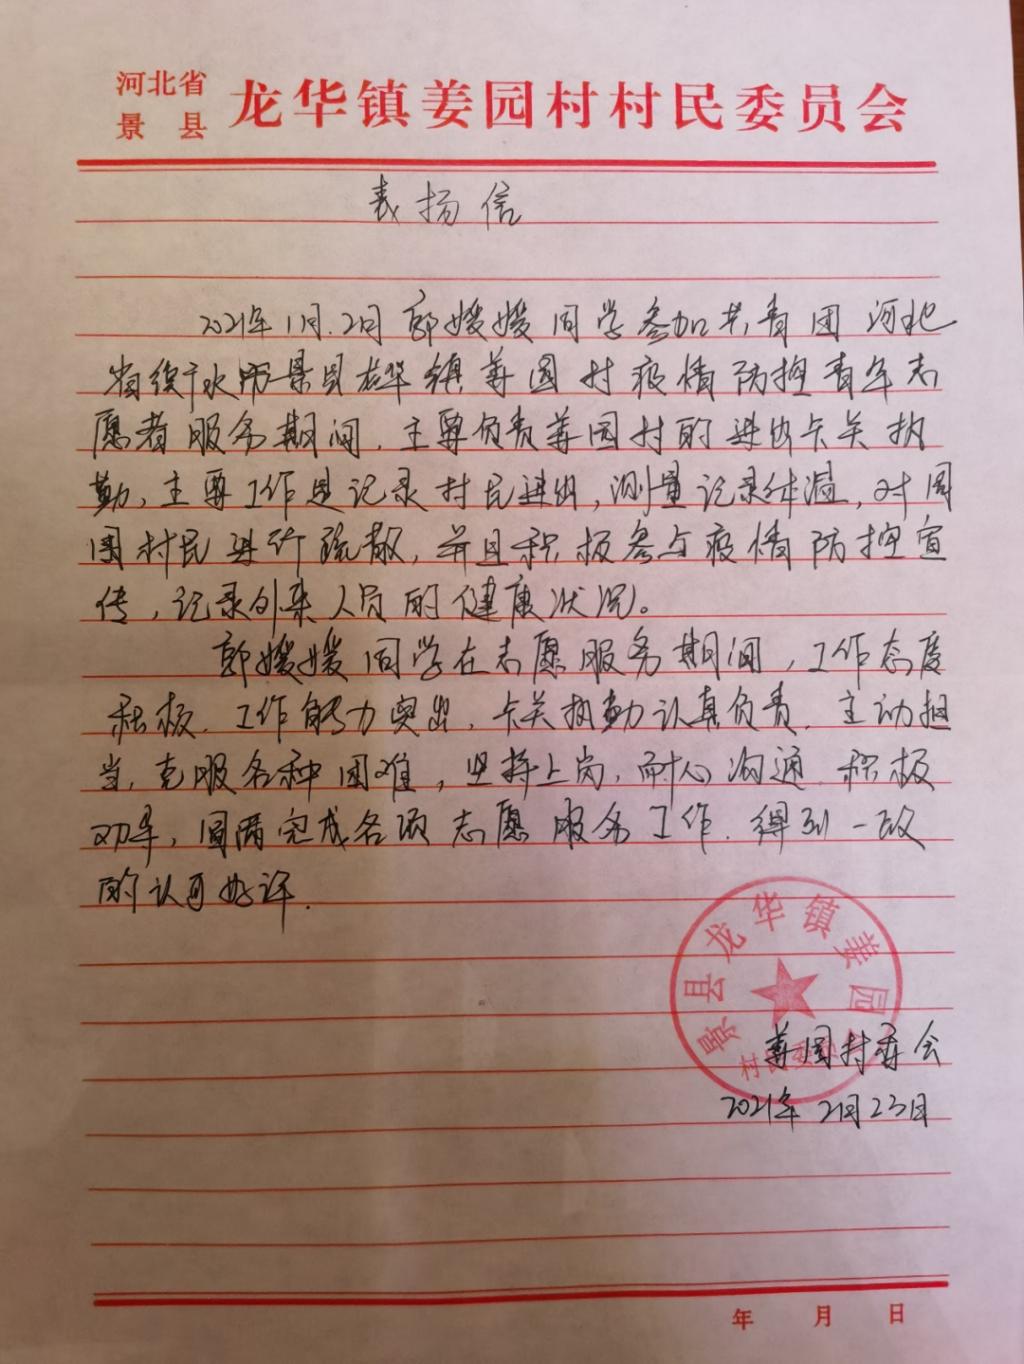 河北省
景县
龙华镇姜园村村民委员会
表扬信
2021年1月.2月郭嫒嫒同学参加共青团河北
省衡水市景县龙华镇姜园村疫情防控青年志
愿者服务期间.主要负责姜园村的进出卡关执
勤,主要工作是记录村民进出,测量记录体温,对周
围村民进行疏散,并且积极参与疫情防控宣
传,记录外来人员的健康状况。
郭嫒嫒同学在志愿服务期间,工作态度
积极.工作能力突出.卡关执勤认真负责.主动担
当,克服各种困难,坚持上岗,耐心沟通.积极
劝导,圆满完成各项志愿服务工作.得到一致
的认可好评.
景县龙华镇姜园
村民委员会
姜园村委会
2021年2月23日
年 月 日